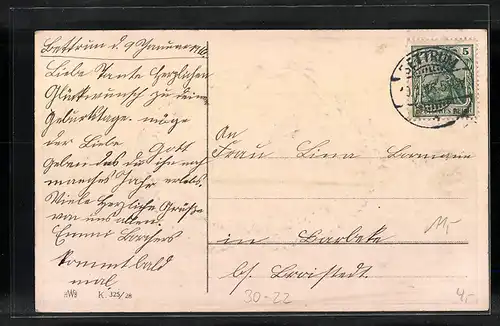 Bettrum d. 9 Januar 16.
Liebe Tante Herzlichen
Glückwunsch zu deine
Geburtstage. möge
der Liebe Gott
Geben das du ihn noch
manches Jahr erlebs.
Viele Herzliche Grüße
von uns allen.
Emma Bachers
kommt bald
mal
HWB K. 325/28
5
BETTRUM
An
Frau Lina Bormann
in Barbeke
bs. Broistedt
11,-
30-22
4,-